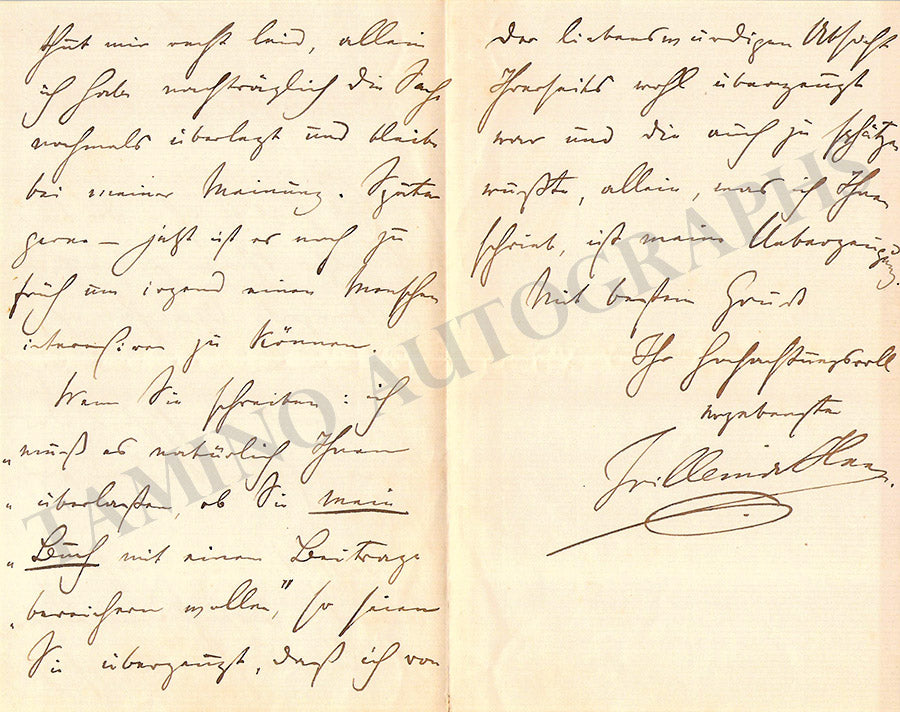 thut mir recht leid, allein
ich habe nachträglich die Sache
nochmals überlegt und bleibe
bei meiner Meinung. Später
gerne – jetzt ist es noch zu
früh um irgend einen Menschen
interessiren zu können.
Wenn Sie schreiben: ich
„muß es natürlich Ihnen
„überlassen, ob Sie mein
„Buch mit einem Beitrage
„bereichern wollen," so seien
Sie überzeugt, daß ich von
der liebenswürdigen Absicht
Ihrerseits wohl überzeugt
war und die auch zu schätzen
wußte, allein, was ich Ihnen
schrieb, ist meine Ueberzeugung.
Mit bestem Gruß
Ihr hochachtungsvoll
ergebenster
TAMINO AUTOGRAPHS